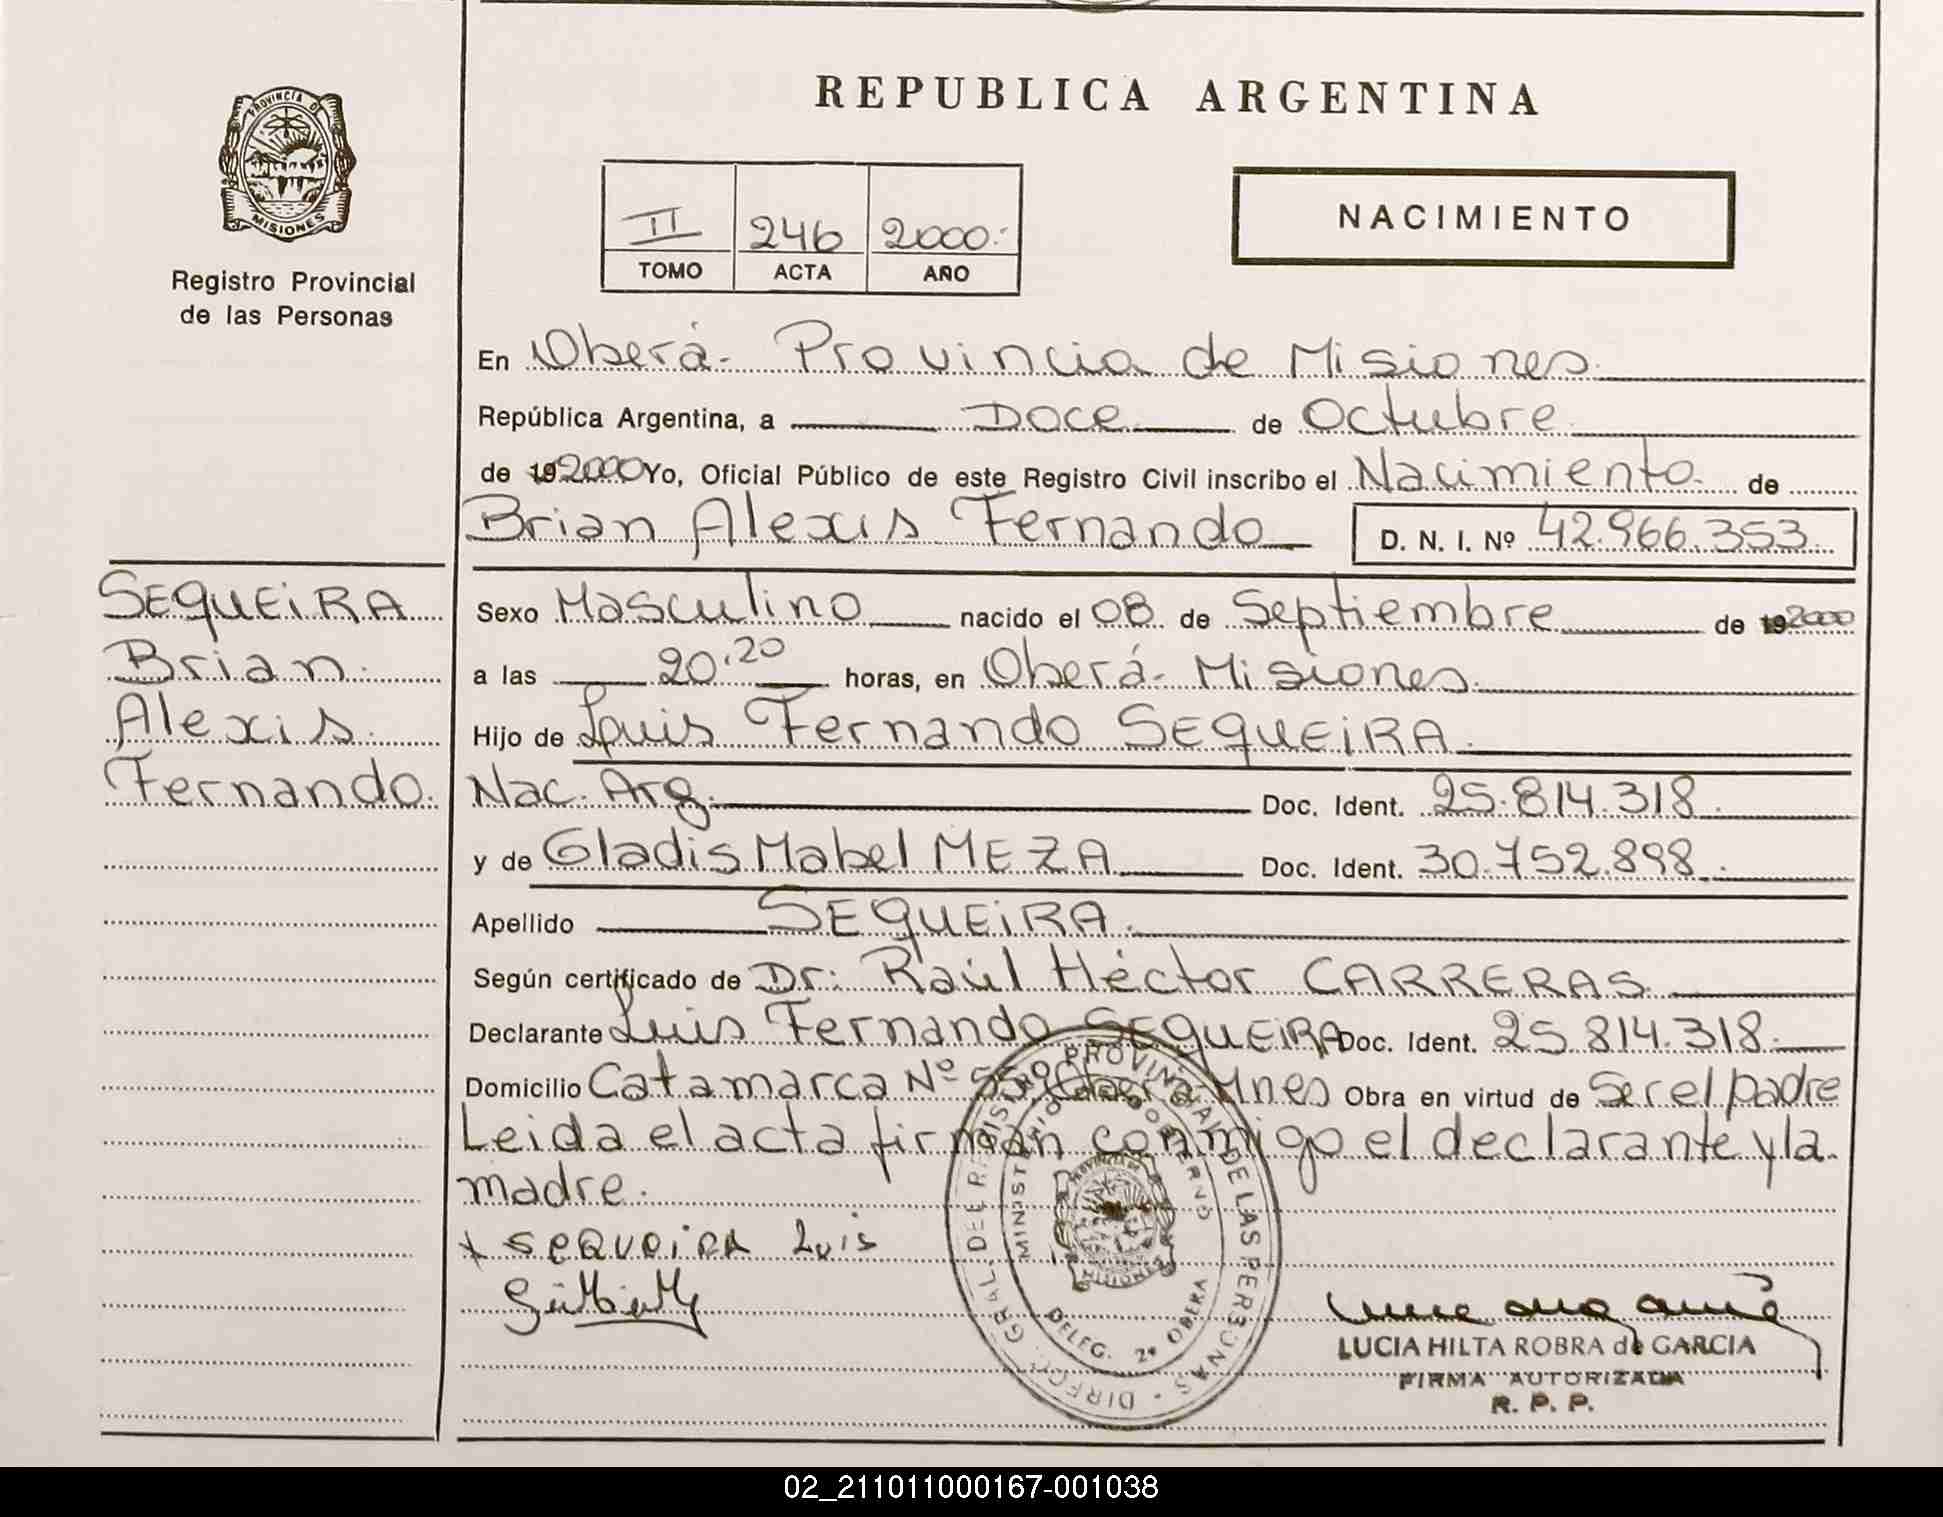 REPUBLICA ARGENTINA
PROVINCIA DE
MISIONES
Registro Provincial
de las Personas
II 246 2000.-
TOMO ACTA AÑO
NACIMIENTO
En Oberá- Provincia de Misiones.
República Argentina, a Doce de Octubre
de 19 2000 Yo, Oficial Público de este Registro Civil inscribo el Nacimiento de
Brian Alexis Fernando D. N. I. Nº 42.966.353
SEQUEIRA
Brian
Alexis
Fernando.
Sexo Masculino nacido el 08 de Septiembre de 19 2000
a las 20.20 horas, en Oberá- Misiones
Hijo de Luis Fernando SEQUEIRA.
Nac. Arg. Doc. Ident. 25.814.318.
y de Gladis Mabel MEZA Doc. Ident. 30.752.898.
Apellido SEQUEIRA.
Según certificado de Dr: Raúl Héctor CARRERAS
Declarante Luis Fernando SEQUEIRA Doc. Ident. 25.814.318.
Domicilio Catamarca Nº Oberá Mnes Obra en virtud de Ser el padre
Leida el acta firman conmigo el declarante y la
madre.
SEQUEIRA Luis
DIRECC. GRAL. DEL REGISTRO PROVINCIAL DE LAS PERSONAS
MINISTERIO DE GOBIERNO
PROVINCIA DE
MISIONES
DELEG. 2ª OBERA
LUCIA HILTA ROBRA de GARCIA
FIRMA AUTORIZADA
R. P. P.
02_211011000167-001038